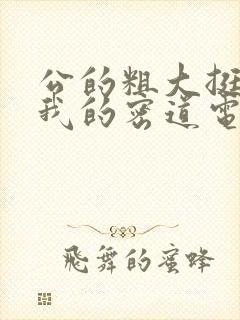 公的粗大挺
我的密道电
飛舞的蜜蜂